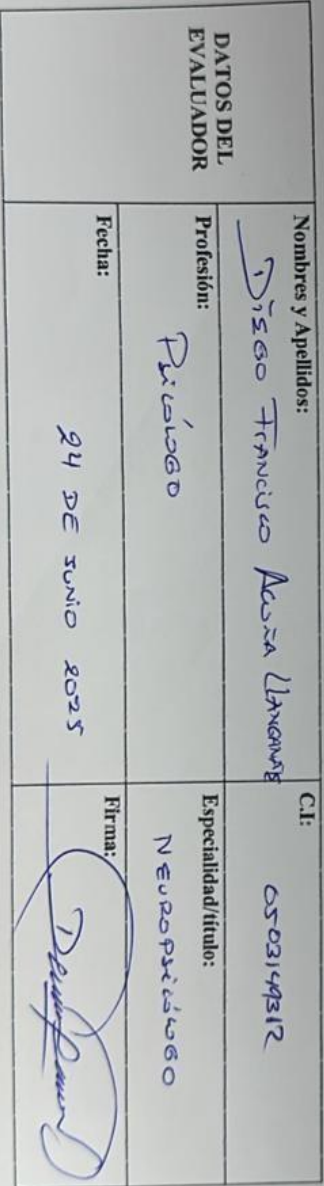 DATOS DEL
EVALUADOR
Nombres y Apellidos:
Diego Francisco Acuña
C.I:
0503149312
Profesión:
Psicólogo
Especialidad/título:
Neuropsicólogo
Fecha:
24 DE JUNIO 2025
Firma: